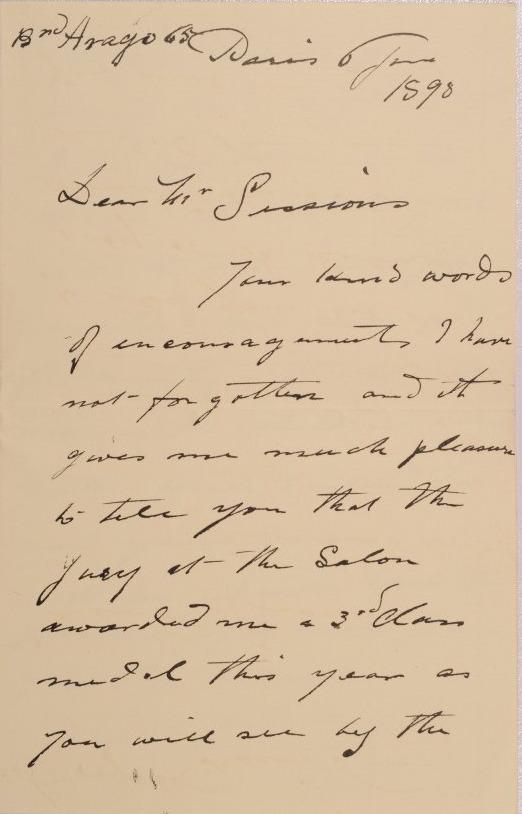 Bnd Arago 65 Paris 6 June
1898
Dear Mr Sessions
Your kind words
of encouragement, I have
not forgotten and it
gives me much pleasure
to tell you that the
Jury at the Salon
awarded me a 3rd Class
medal this year as
you will see by the